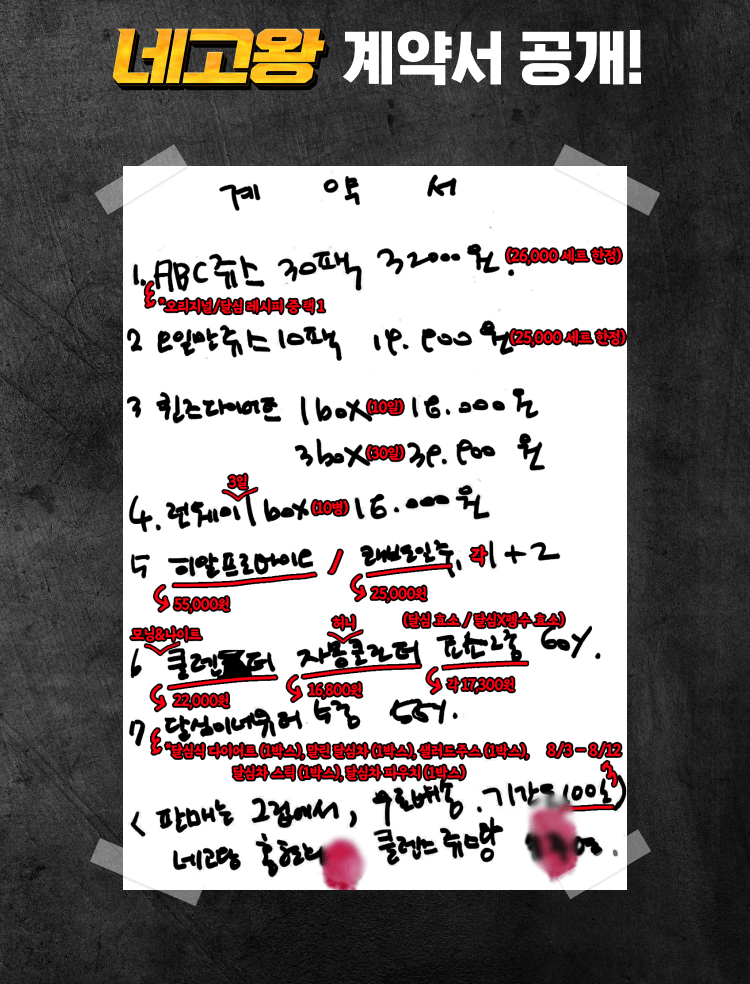 네고왕 계약서 공개!
계 약 서
1. ABC쥬스 30팩 32000원. (26,000 세트 한정)
*오리지널/달심 레시피 중 택1
2 오일만쥬스 10팩 19.900원 (25,000 세트 한정)
3 퀸즈다이어트 1box (10일) 18.000원
3box (30일) 39.900원
3일
4. 런웨이 1box (10병) 16.000원
5 히알프로바이드 / 래보일주, 각 1+2
55,000원 25,000원
모닝&나이트 허니 (달심 효소 / 달심X펭수 효소)
6 클렌터 자몽콜라터 효소2종 60%.
22,000원 16,800원 각 17,300원
7 달심이너뷰티 5종 55%.
*달심식 다이어트 (1박스), 말린 달심차 (1박스), 샐러드주스 (1박스), 8/3 – 8/12
달심차 스틱 (1박스), 달심차 파우치 (1박스)
< 판매는 그립에서, 무료배송. 기간은 100일)
네고왕 황광희 클렌즈쥬스왕